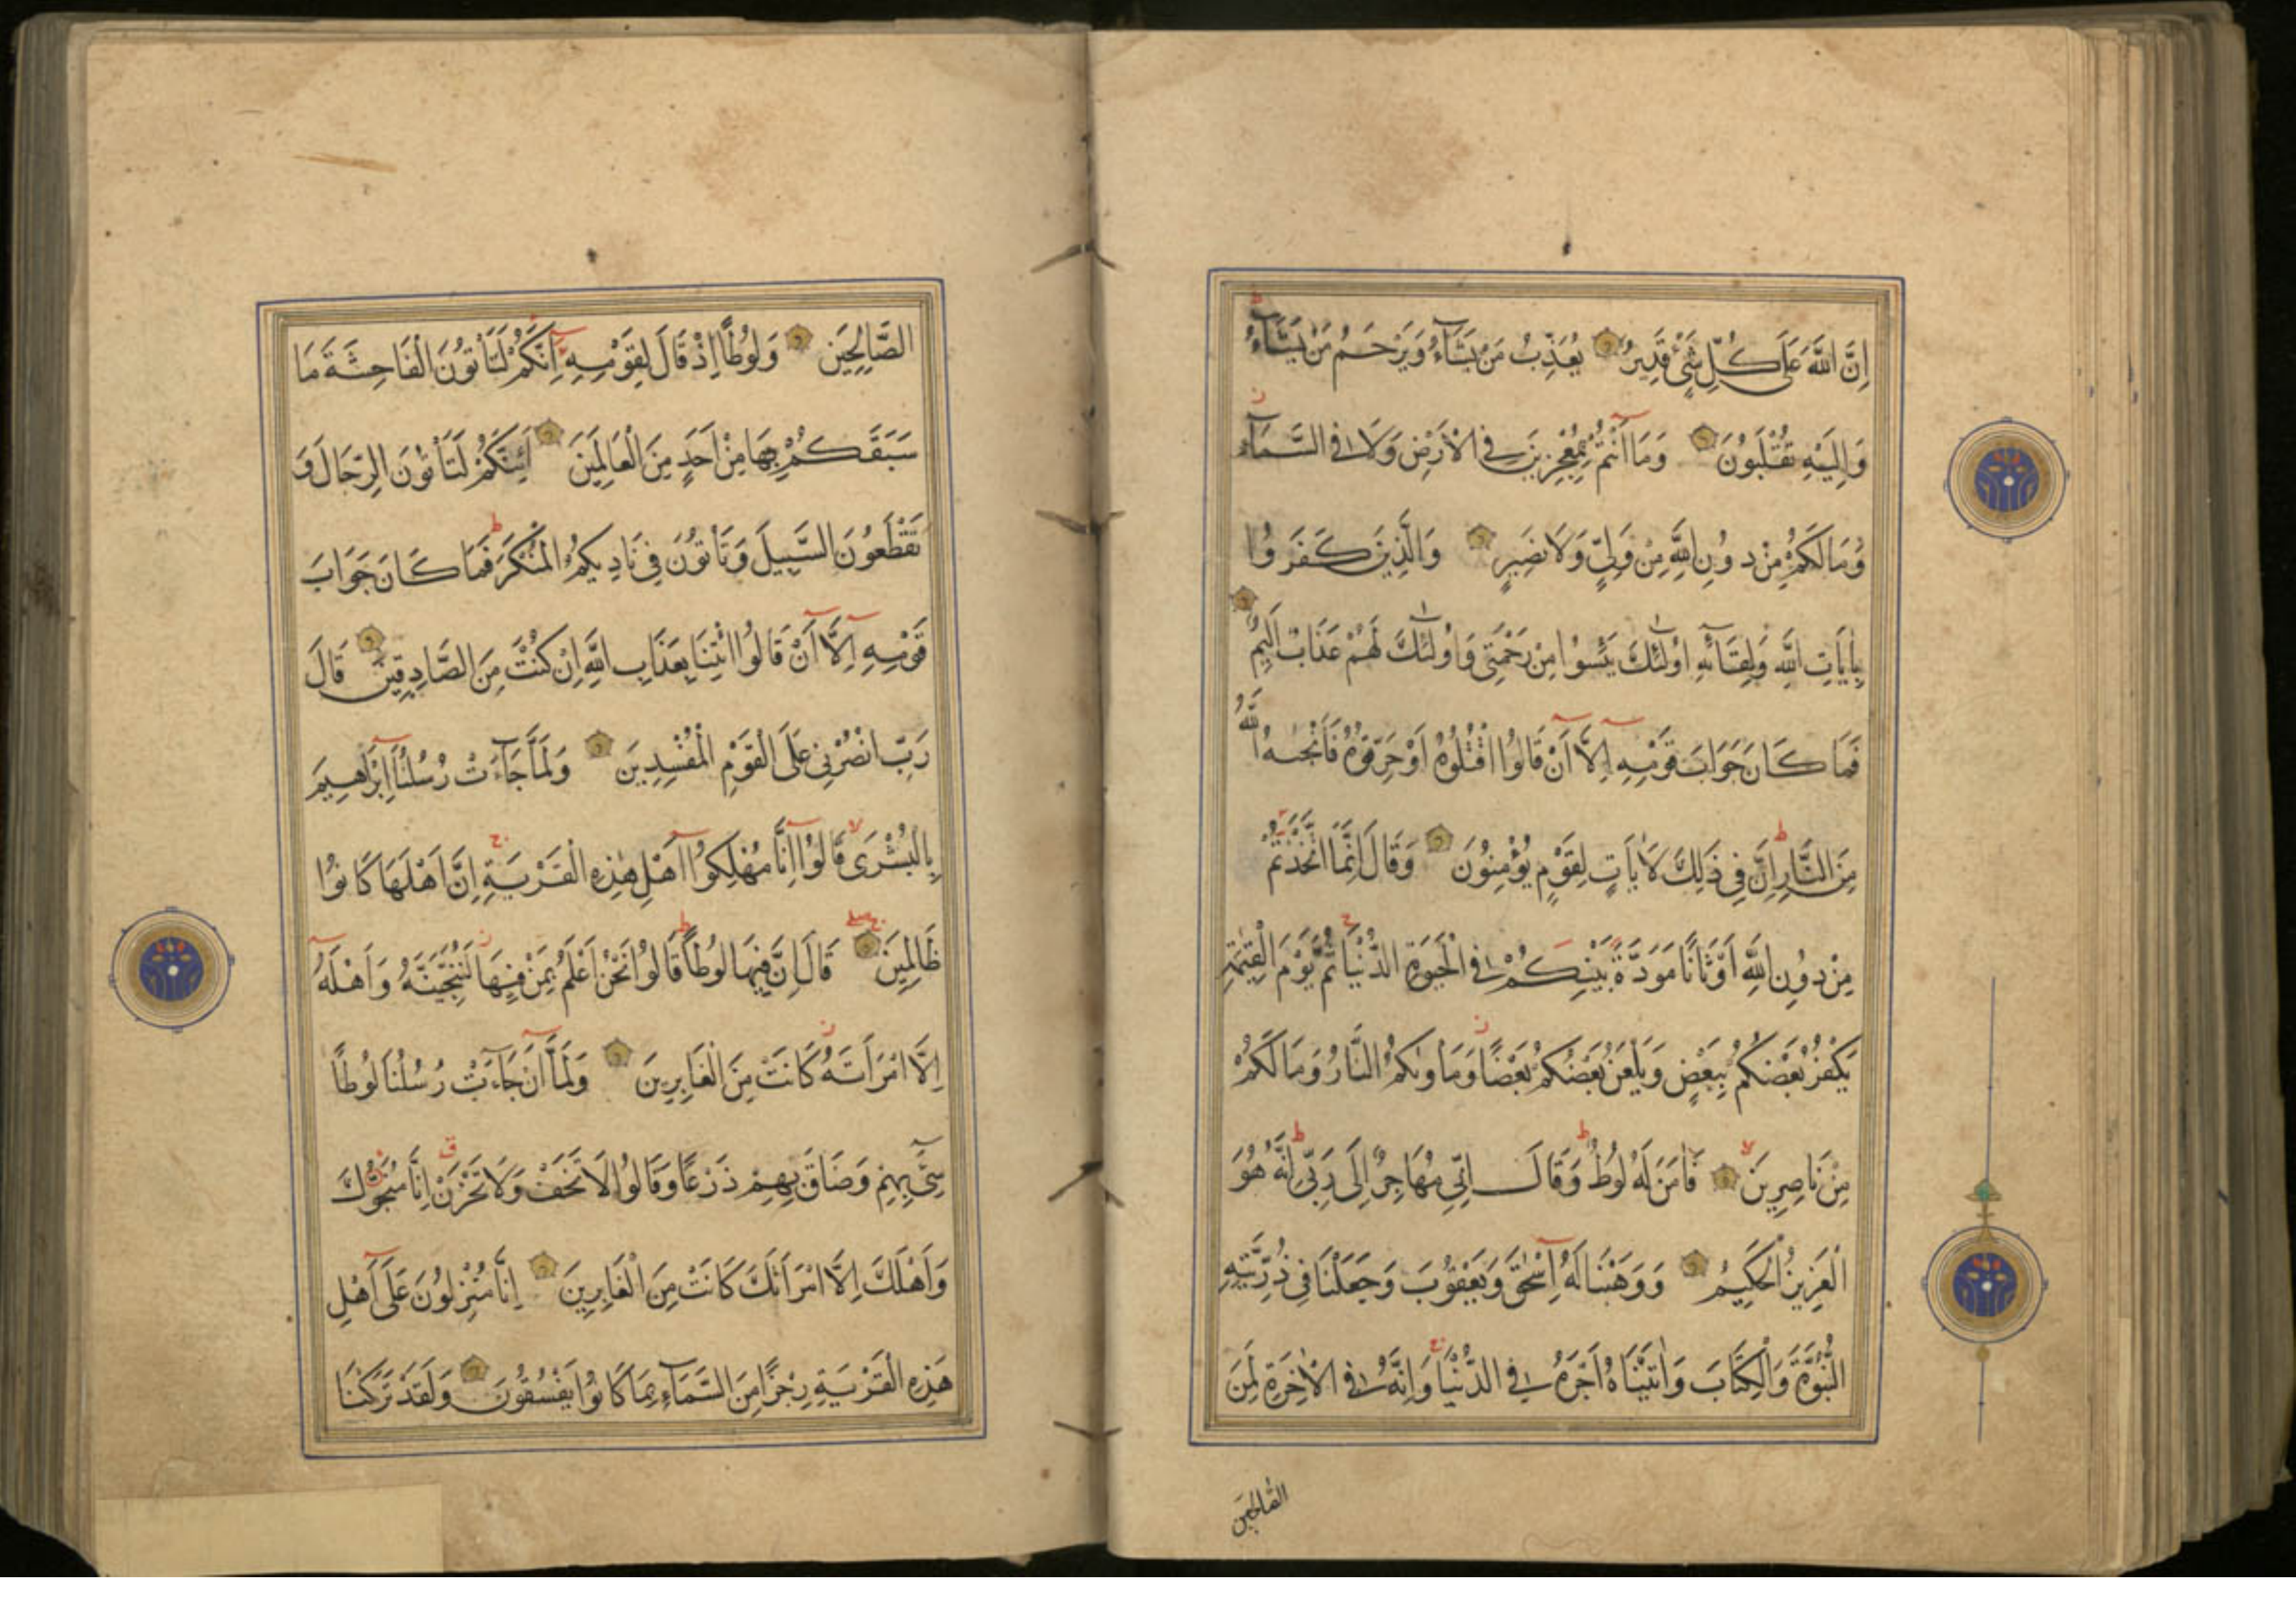 اِنَّ اللّٰهَ عَلَى كُلِّ شَيْءٍ قَدِيرٌ يُعَذِّبُ مَنْ يَشَاءُ وَيَرْحَمُ مَنْ يَشَاءُ
وَاِلَيْهِ تُقْلَبُونَ وَمَا اَنْتُمْ بِمُعْجِزِينَ فِي الْاَرْضِ وَلَا فِي السَّمَاءِ
وَمَا لَكُمْ مِنْ دُونِ اللّٰهِ مِنْ وَلِيٍّ وَلَا نَصِيرٍ وَالَّذِينَ كَفَرُوا
بِاٰيَاتِ اللّٰهِ وَلِقَائِهِ اُولٰئِكَ يَئِسُوا مِنْ رَحْمَتِي وَاُولٰئِكَ لَهُمْ عَذَابٌ اَلِيمٌ
فَمَا كَانَ جَوَابَ قَوْمِهِ اِلَّا اَنْ قَالُوا اقْتُلُوهُ اَوْ حَرِّقُوهُ فَاَنْجٰىهُ اللّٰهُ
مِنَ النَّارِ اِنَّ فِي ذٰلِكَ لَاٰيَاتٍ لِقَوْمٍ يُؤْمِنُونَ وَقَالَ اِنَّمَا اتَّخَذْتُمْ
مِنْ دُونِ اللّٰهِ اَوْثَانًا مَوَدَّةَ بَيْنِكُمْ فِي الْحَيٰوةِ الدُّنْيَا ثُمَّ يَوْمَ الْقِيٰمَةِ
يَكْفُرُ بَعْضُكُمْ بِبَعْضٍ وَيَلْعَنُ بَعْضُكُمْ بَعْضًا وَمَأْوٰىكُمُ النَّارُ وَمَا لَكُمْ
مِنْ نَاصِرِينَ فَاٰمَنَ لَهُ لُوطٌ وَقَالَ اِنِّي مُهَاجِرٌ اِلَى رَبِّي اِنَّهُ هُوَ
الْعَزِيزُ الْحَكِيمُ وَوَهَبْنَا لَهُ اِسْحٰقَ وَيَعْقُوبَ وَجَعَلْنَا فِي ذُرِّيَّتِهِ
النُّبُوَّةَ وَالْكِتَابَ وَاٰتَيْنَاهُ اَجْرَهُ فِي الدُّنْيَا وَاِنَّهُ فِي الْاٰخِرَةِ لَمِنَ
الصَّالِحِينَ
الصَّالِحِينَ وَلُوطًا اِذْ قَالَ لِقَوْمِهِ اِنَّكُمْ لَتَأْتُونَ الْفَاحِشَةَ مَا
سَبَقَكُمْ بِهَا مِنْ اَحَدٍ مِنَ الْعَالَمِينَ اَئِنَّكُمْ لَتَأْتُونَ الرِّجَالَ وَ
تَقْطَعُونَ السَّبِيلَ وَتَأْتُونَ فِي نَادِيكُمُ الْمُنْكَرَ فَمَا كَانَ جَوَابَ
قَوْمِهِ اِلَّا اَنْ قَالُوا ائْتِنَا بِعَذَابِ اللّٰهِ اِنْ كُنْتَ مِنَ الصَّادِقِينَ قَالَ
رَبِّ انْصُرْنِي عَلَى الْقَوْمِ الْمُفْسِدِينَ وَلَمَّا جَاءَتْ رُسُلُنَا اِبْرٰهِيمَ
بِالْبُشْرَى قَالُوا اِنَّا مُهْلِكُوا اَهْلِ هٰذِهِ الْقَرْيَةِ اِنَّ اَهْلَهَا كَانُوا
ظَالِمِينَ قَالَ اِنَّ فِيهَا لُوطًا قَالُوا نَحْنُ اَعْلَمُ بِمَنْ فِيهَا لَنُنَجِّيَنَّهُ وَاَهْلَهُ
اِلَّا امْرَاَتَهُ كَانَتْ مِنَ الْغَابِرِينَ وَلَمَّا اَنْ جَاءَتْ رُسُلُنَا لُوطًا
سِيءَ بِهِمْ وَضَاقَ بِهِمْ ذَرْعًا وَقَالُوا لَا تَخَفْ وَلَا تَحْزَنْ اِنَّا مُنَجُّوكَ
وَاَهْلَكَ اِلَّا امْرَاَتَكَ كَانَتْ مِنَ الْغَابِرِينَ اِنَّا مُنْزِلُونَ عَلَى اَهْلِ
هٰذِهِ الْقَرْيَةِ رِجْزًا مِنَ السَّمَاءِ بِمَا كَانُوا يَفْسُقُونَ وَلَقَدْ تَرَكْنَا